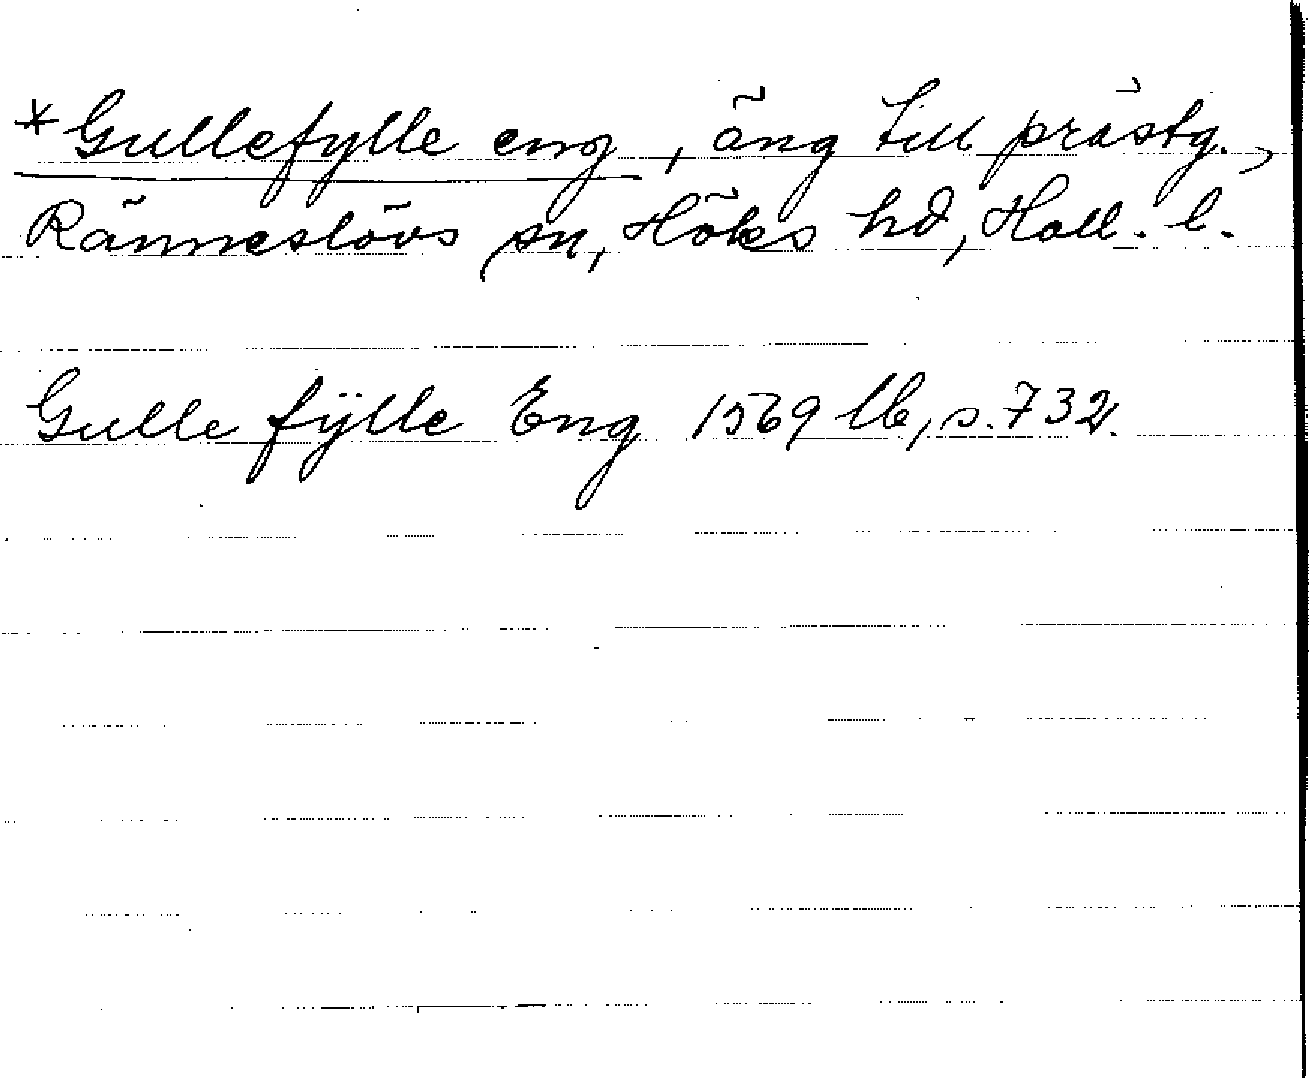 *Gullefylle eng, äng till prästg.,
Ränneslövs sn, Höks hd, Hall. l.
Gulle fÿlle Eng 1569 lb, s. 732.